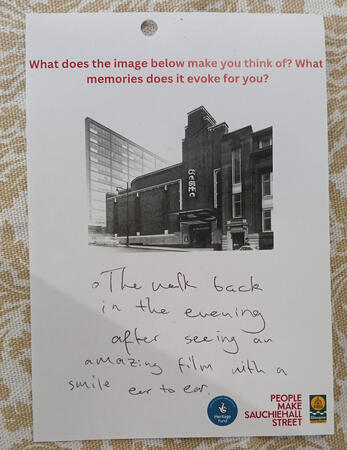 What does the image below make you think of? What
memories does it evoke for you?
The walk back
in the evening
after seeing an
amazing film with a
smile ear to ear.
Heritage
Fund
PEOPLE
MAKE
SAUCHIEHALL
STREET